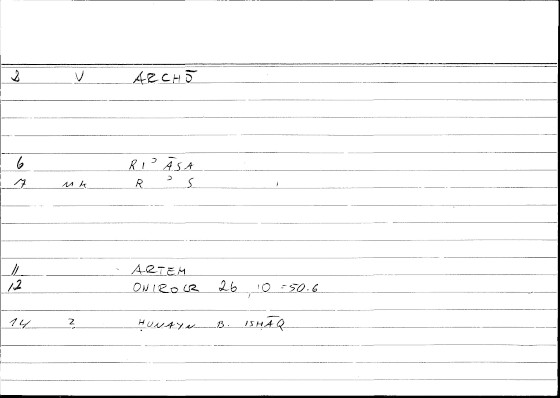 2 V ARCHŌ
6 RIʾĀSA
7 MK R ʾ S
11 ARTEM
12 ONIROCR 26,10 = 50.6
14 2 ḤUNAYN B. ISḤĀQ